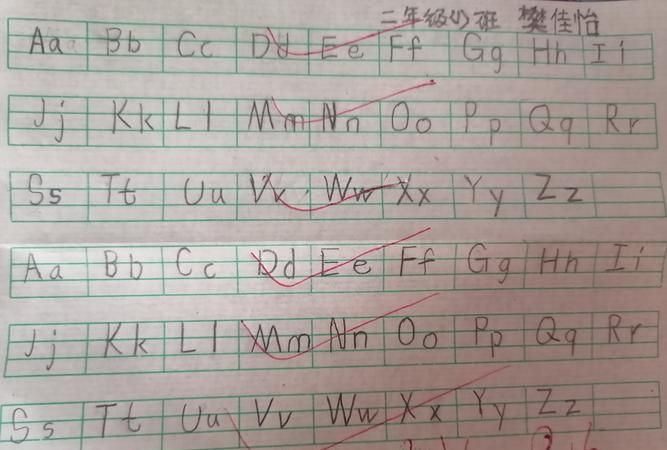 二年级(1)班 樊佳怡
Aa Bb Cc Dd Ee Ff Gg Hh Ii
Jj Kk Ll Mm Nn Oo Pp Qq Rr
Ss Tt Uu Vv Ww Xx Yy Zz
Aa Bb Cc Dd Ee Ff Gg Hh Ii
Jj Kk Ll Mm Nn Oo Pp Qq Rr
Ss Tt Uu Vv Ww Xx Yy Zz